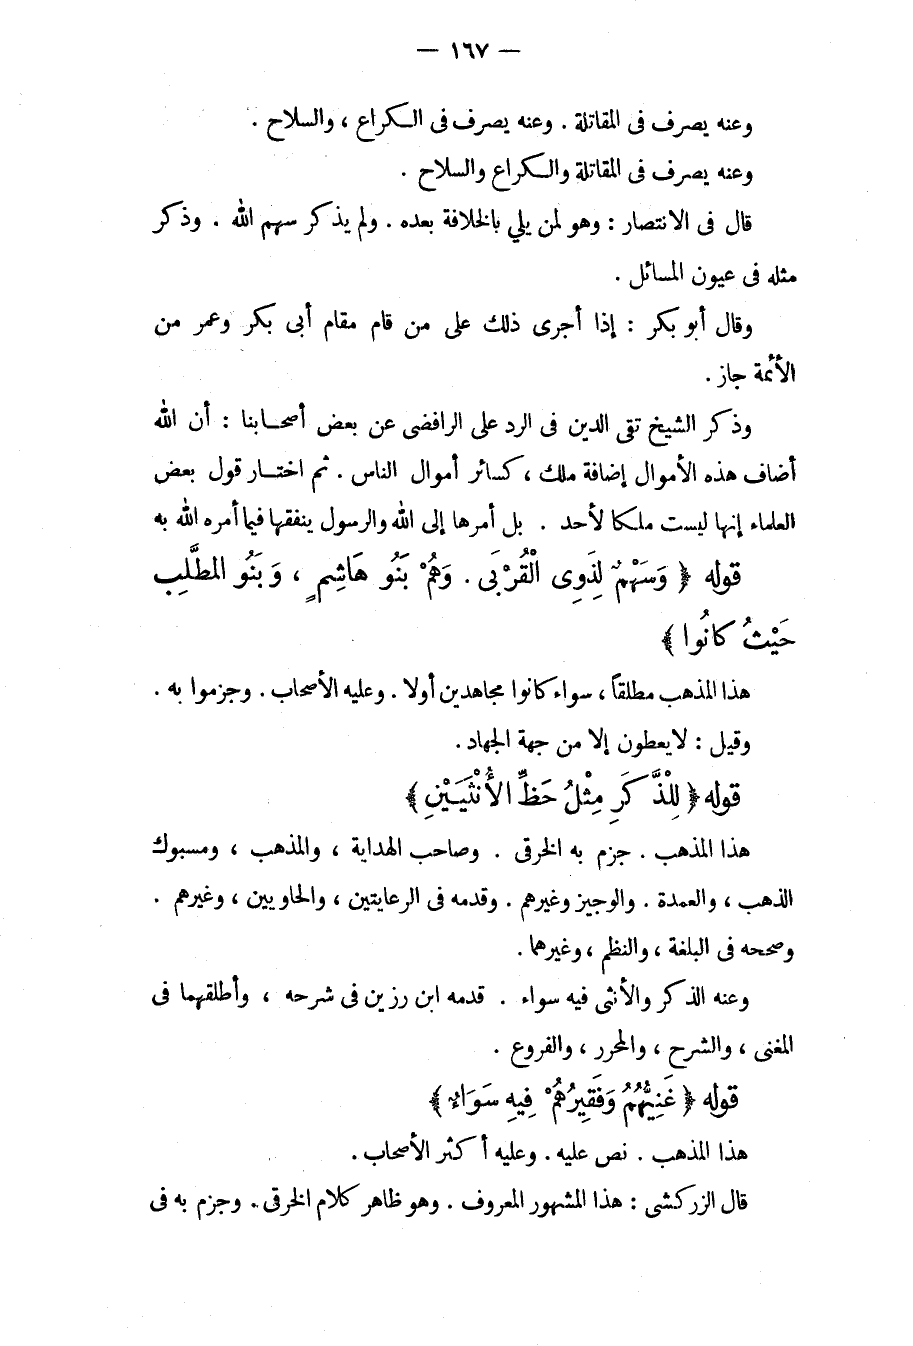 — ١٦٧ —
وعنه يصرف فى المقاتلة . وعنه يصرف فى الكراع ، والسلاح .
وعنه يصرف فى المقاتلة والكراع والسلاح .
قال فى الانتصار : وهو لمن يلي بالخلافة بعده . ولم يذكر سهم الله . وذكر
مثله فى عيون المسائل .
وقال أبو بكر : إذا أجرى ذلك على من قام مقام أبى بكر وعمر من
الأئمة جاز .
وذكر الشيخ تقى الدين فى الرد على الرافضى عن بعض أصحابنا : أن الله
أضاف هذه الأموال إضافة ملك ، كسائر أموال الناس . ثم اختار قول بعض
العلماء إنها ليست ملكا لأحد . بل أمرها إلى الله والرسول ينفقها فيما أمره الله به
قوله ﴿ وَسَهْمٌ لِذَوِى الْقُرْبَى . وَهُمْ بَنُو هَاشِمٍ ، وَبَنُو المطَّلِبِ
حَيْثُ كانُوا ﴾
هذا المذهب مطلقاً ، سواء كانوا مجاهدين أولا . وعليه الأصحاب . وجزموا به .
وقيل : لا يعطون إلا من جهة الجهاد .
قوله ﴿ لِلْذَّكَرِ مِثْلُ حَظِّ الأُنْثَيَيْنِ ﴾
هذا المذهب . جزم به الخرقى . وصاحب الهداية ، والمذهب ، ومسبوك
الذهب ، والعمدة . والوجيز وغيرهم . وقدمه فى الرعايتين ، والحاويين ، وغيرهم .
وصححه فى البلغة ، والنظم ، وغيرهما .
وعنه الذكر والأنثى فيه سواء . قدمه ابن رزين فى شرحه ، وأطلقهما فى
المغنى ، والشرح ، والمحرر ، والفروع .
قوله ﴿ غَنِيُّهُمْ وَفَقِيرُهُمْ فِيهِ سَوَاءٌ ﴾
هذا المذهب . نص عليه . وعليه أكثر الأصحاب .
قال الزركشى : هذا المشهور المعروف . وهو ظاهر كلام الخرقى . وجزم به فى